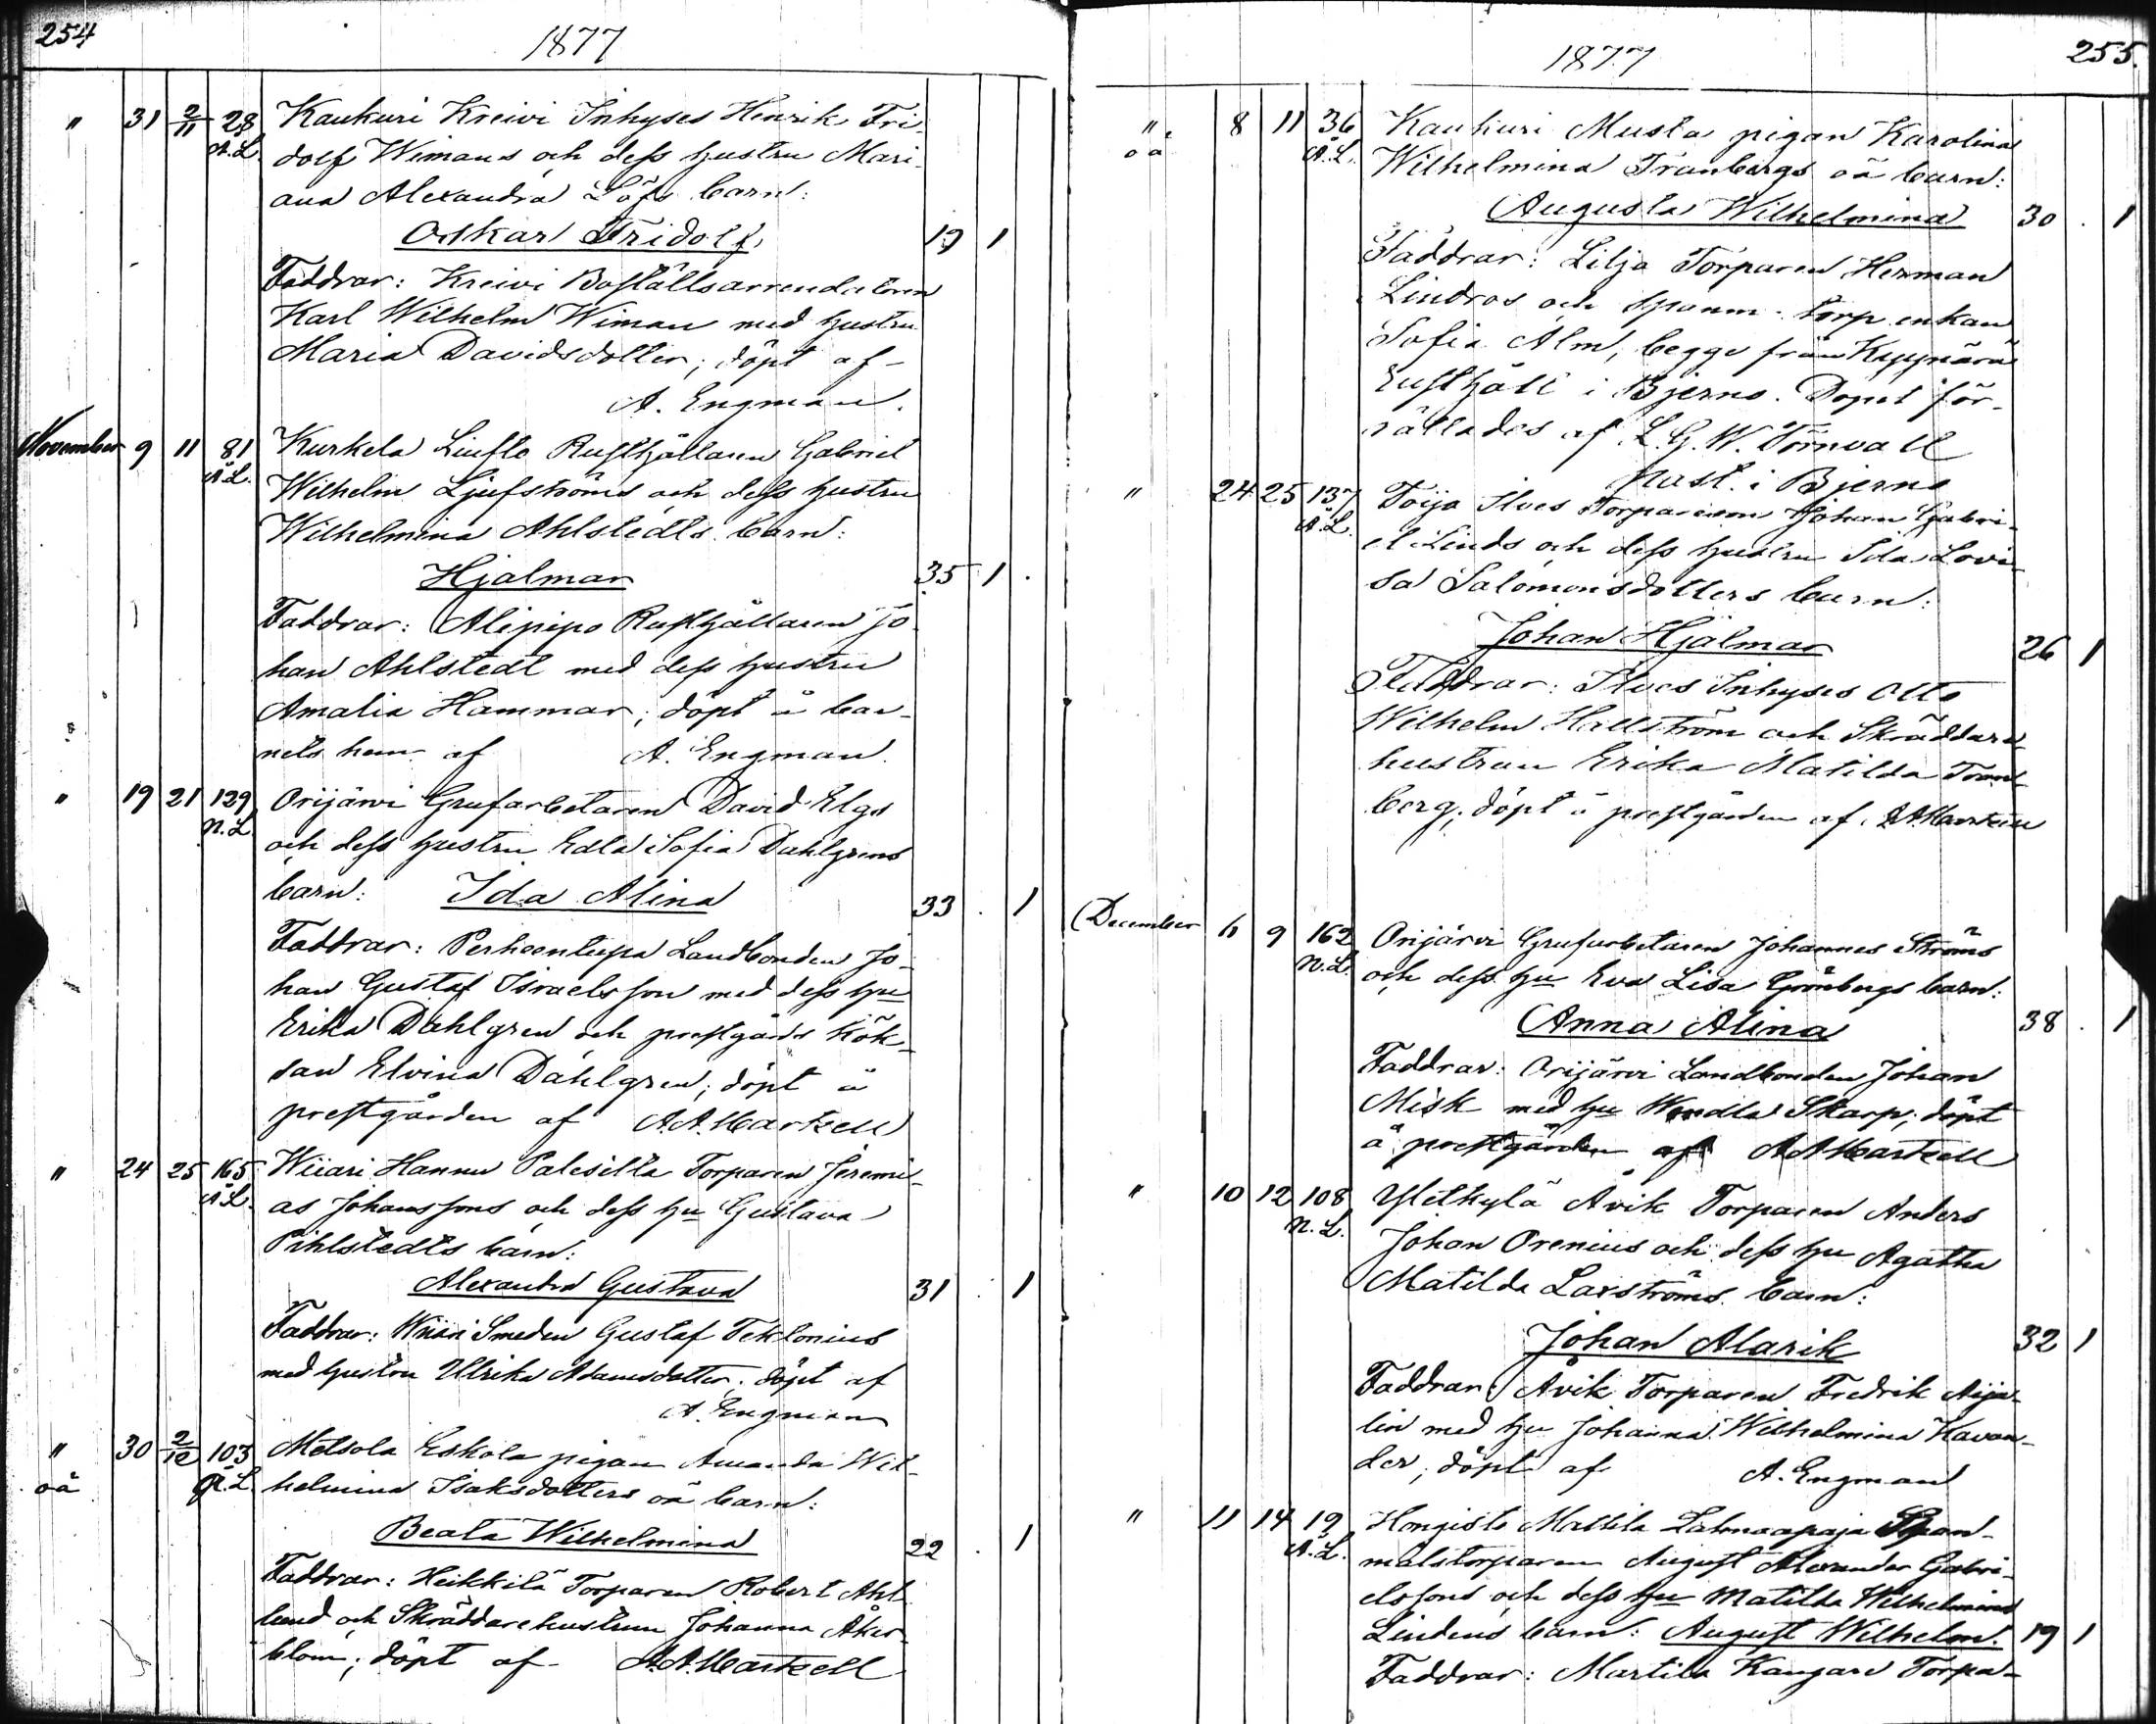 254
1877
" 31 2/11 28 Kaukuri Kreivi Inhyses Henrik Fri-
N.L. dolf Wimans och dess hustru Mari-
ana Alexandra Löfs barn:
Oskar Fridolf 19 1
Faddrar: Kreivi Boställsarrendatoren
Karl Wilhelm Wiman med hustru
Maria Davidsdotter; döpt af
A. Engman.
November 9 11 81 Kurkela Liuflo Rusthållaren Gabriel
N.L. Wilhelm Ljufströms och dess hustru
Wilhelmina Ahlstedts barn:
Hjalmar 35 1 .
Faddrar: Alipipo Rusthållaren Jo-
han Ahlstedt med dess hustru
Amalia Hammar; döpt å bar-
nets hem af A. Engman.
" 19 21 129 Orijärvi Grufarbetaren David Elgs
N.L. och dess hustru Edla Sofia Dahlgrens
barn: Ida Alina 33 . 1
Faddrar: Perheentupa Landbonden Jo-
han Gustaf Israelsson med dess hu
Erika Dahlgren och prestgårds Kök-
san Elvina Dahlgren; döpt å
prestgården af A.A. Martzell
" 24 25 165 Wiiari Hannu Palesilta Torparen Jeremi-
N.L. as Johanssons och dess hu Gustava
Pihlstedts barn:
Alexandra Gustava 31 . 1
Faddrar: Wiiari Smeden Gustaf Tektonius
med hustru Ulrika Adamsdotter; döpt af
A. Engman
" 30 2/12 103 Metsola Eskola pigan Amanda Wil-
oä N.L. helmina Isaksdotters oä barn:
Beata Wilhelmina 22 . 1
Faddrar: Heikkilä Torparen Robert Ahl-
lund och Skräddarehustrun Johanna Åker-
blom; döpt af A.A. Martzell
1877
255.
" 8 11 36 Kaukuri Musta pigan Karolina
oä N.L. Wilhelmina Tranbergs oä barn:
Augusta Wilhelmina 30 . 1
Faddrar: Lilja Torparen Herman
Lindros och torp enkan
Sofia Alm, begge från Keppnärä
Rusthåll i Bjerno. Dopet för-
rättades af L.G.W. Törnvall
past. i Bjerno
" 24 25 137 Toija Ilves Torparen Johan Gabri-
N.L. el Linds och dess hustru Ida Lovi-
sa Salomonsdotters barn:
Johan Hjalmar 26 1
Faddrar: Ilves Inhyses Otto
Wilhelm Hallström och Skräddare
hustrun Erika Matilda Tran-
berg; döpt å prestgården af A.A. Martzell
December 6 9 162 Orijärvi Grufarbetaren Johannes Ströms
N.L. och dess hu Eva Lisa Grönbergs barn:
Anna Alina 38 . 1
Faddrar: Orijärvi Landbonden Johan
Misk med hu Wendla Skarp; döpt
å prestgården af A.A. Martzell
" 10 12 108 Ylikylä Åvik Torparen Anders
N.L. Johan Orenius och dess hu Agatha
Matilda Laxströms barn:
Johan Alarik 32 1
Faddrar: Åvik Torparen Fredrik Nija-
lin med hu Johanna Wilhelmina Havan-
der; döpt af A. Engman
" 11 14 19 Hongisto Mattila Lahnaapaja Span-
N.L. målstorparen August Alexander Gabri-
elssons och dess hu Matilda Wilhelmina
Lindens barn: August Wilhelm. 19 1
Faddrar: Martila Kangare Torpa-